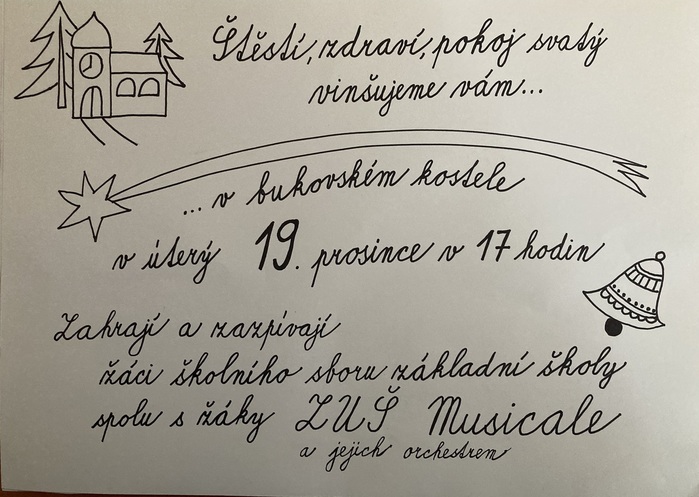 Štěstí, zdraví, pokoj svatý
vinšujeme vám...
... v bukovském kostele
v úterý 19. prosince v 17 hodin
Zahrají a zazpívají
žáci školního sboru základní školy
spolu s žáky ZUŠ Musicale
a jejich orchestrem